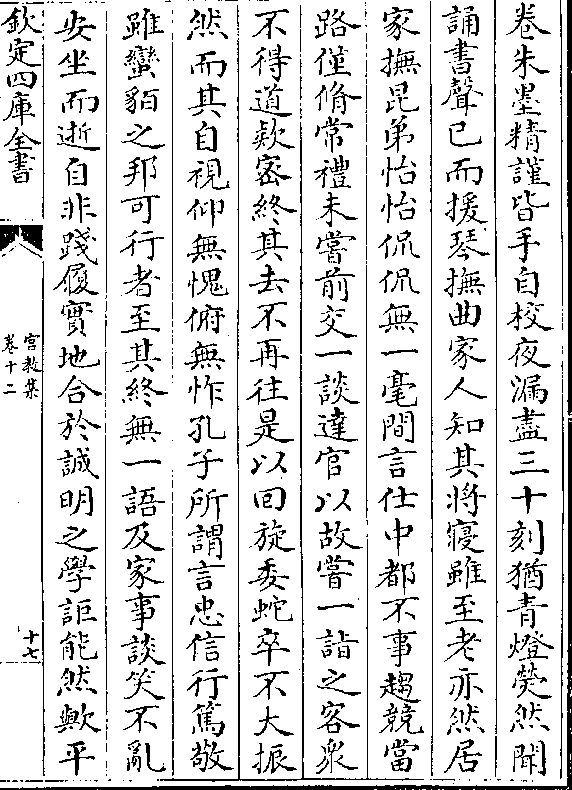 卷朱墨精謹皆手自校夜漏盡三十刻猶青燈熒然聞
誦書聲已而援琴撫曲家人知其將寢雖至老亦然居
家撫昆弟怡怡侃侃無一毫間言仕中都不事趨競當
路僅脩常禮未嘗前交一談達官以故嘗一詣之客衆
不得道欵密終其去不再往是以回旋委蛇卒不大振
然而其自視仰無愧俯無怍孔子所謂言忠信行篤敬
雖蠻貊之邦可行者至其終無一語及家事談笑不亂
安坐而逝自非踐履實地合於誠明之學詎能然歟平
欽定四庫全書
宮教集
卷十二
十七